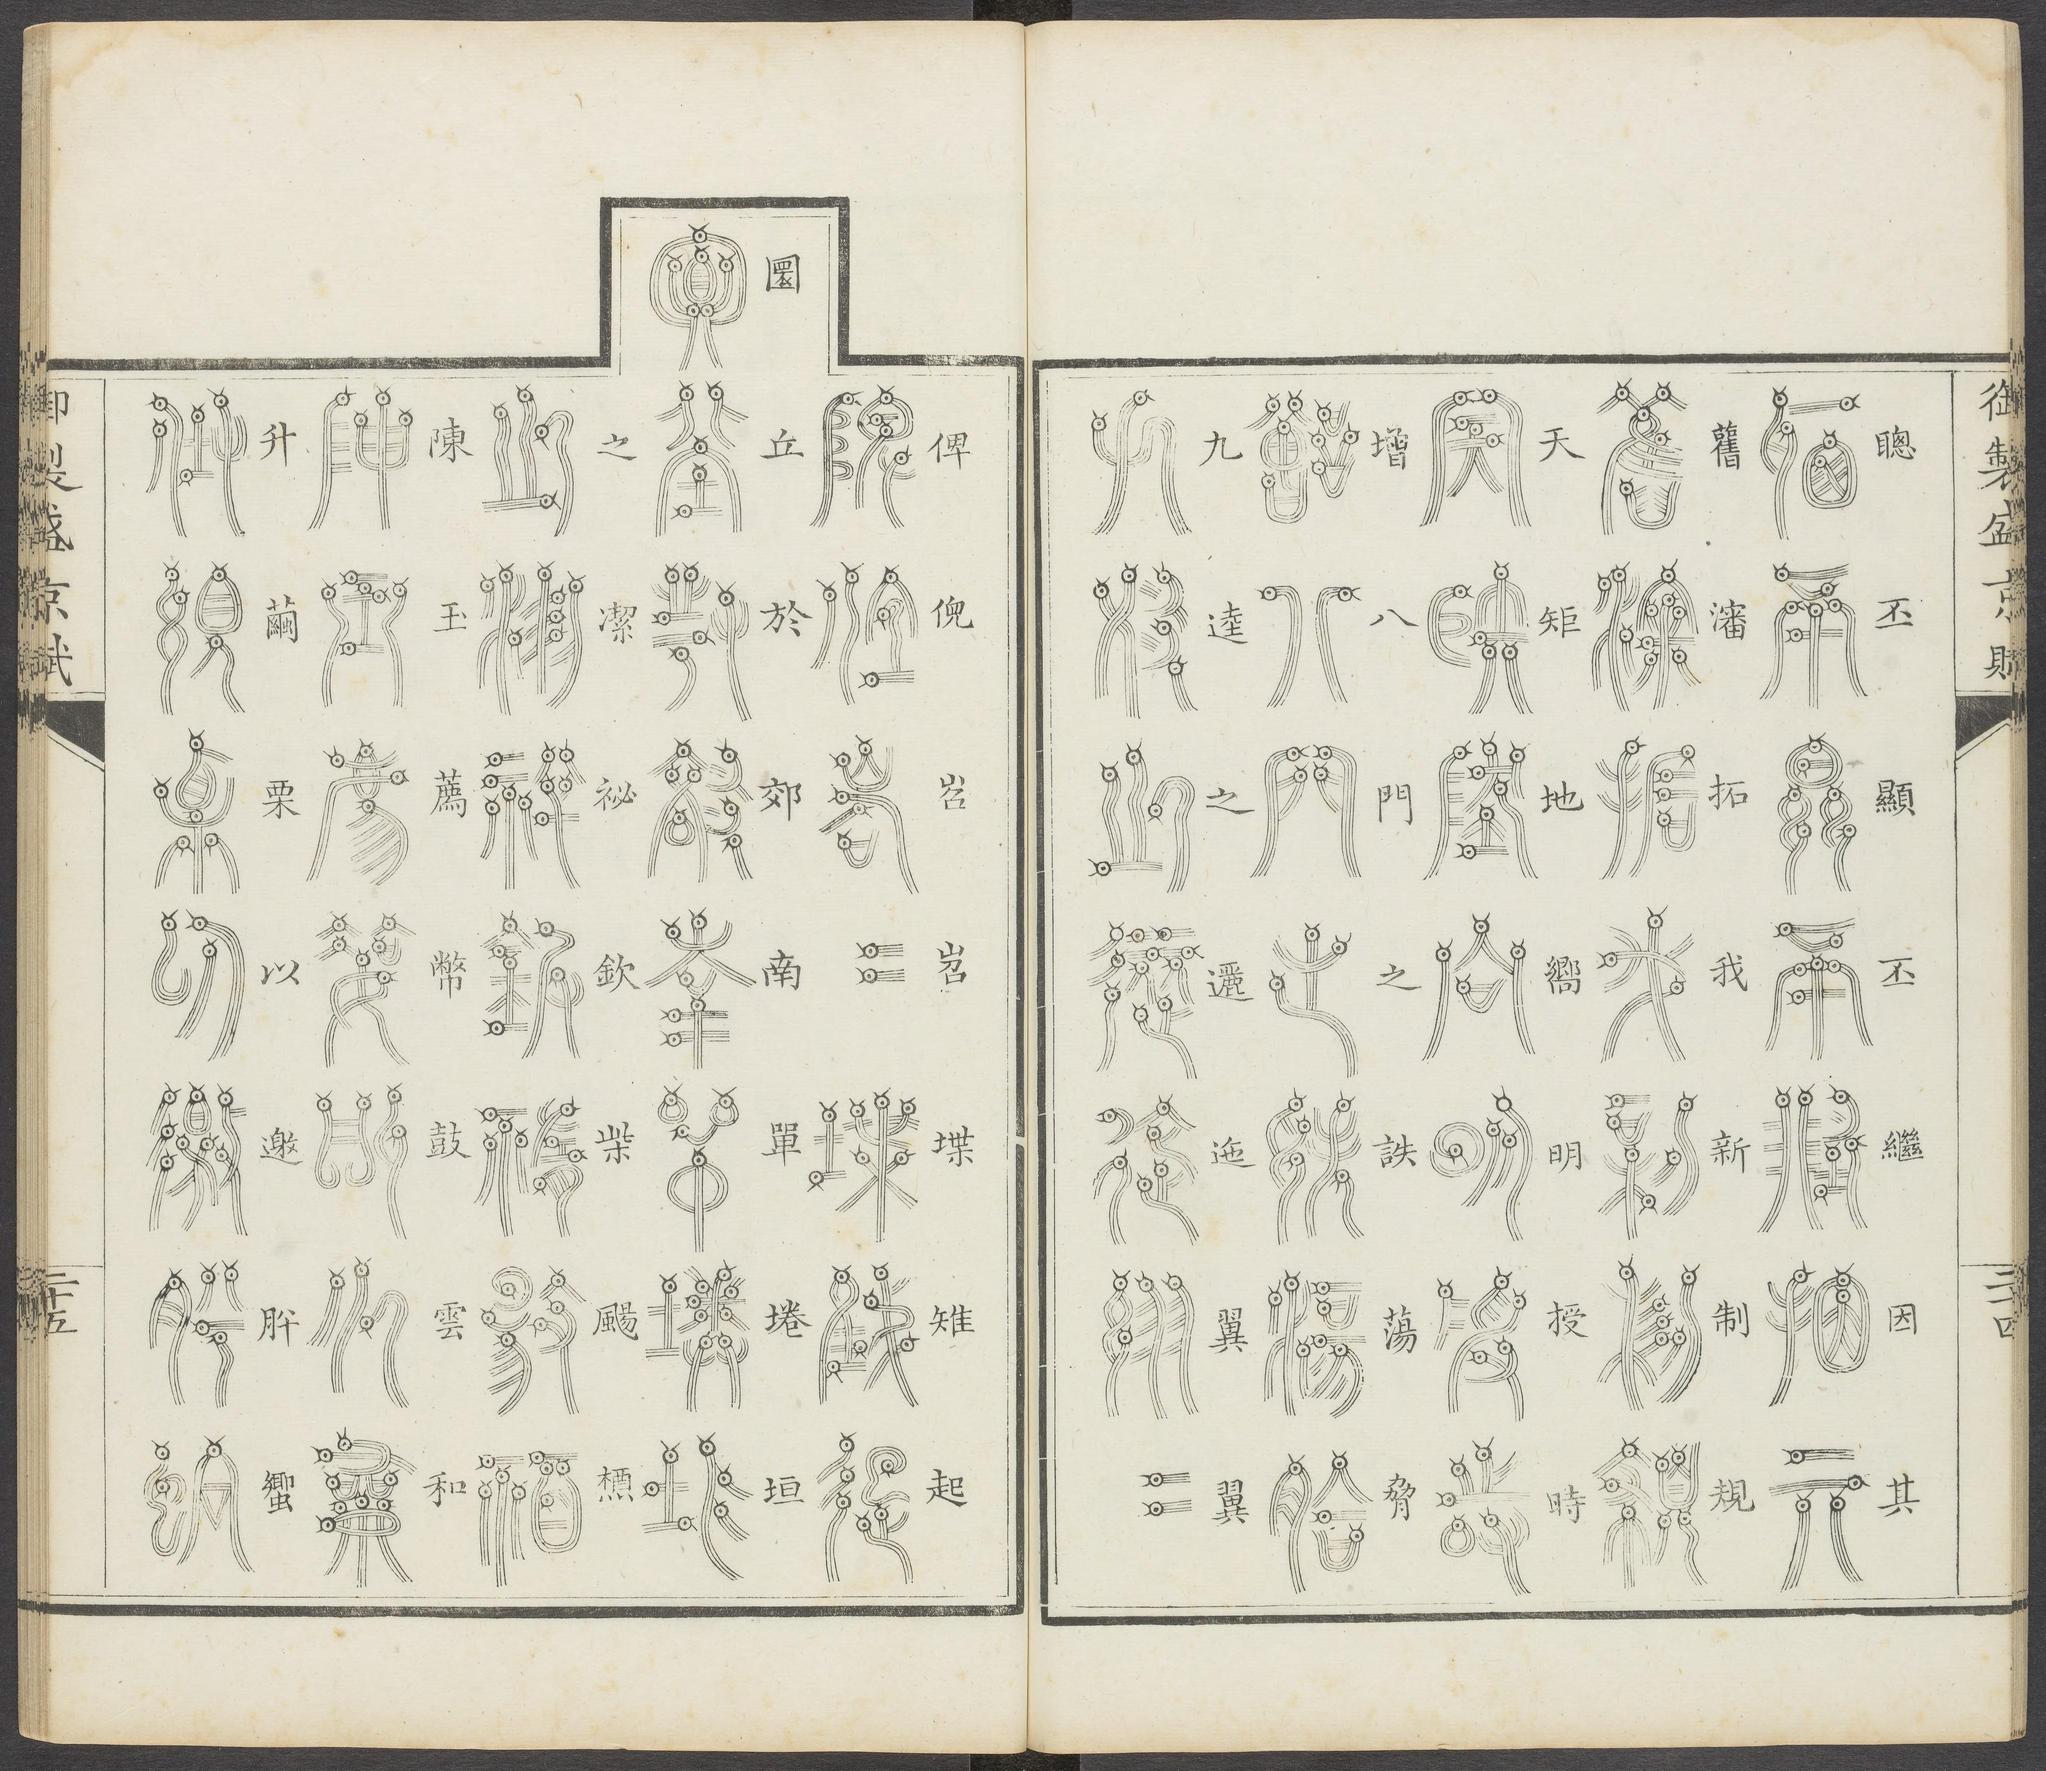 御製盛京賦
二十四
聰丕顯丕繼因其
舊瀋拓我新制規
天矩地嚮明授時
增八門之詄蕩脅
九逵之邐迤翼翼
俾倪岧岧堞雉起
圜丘於郊南單埢垣
之潔祕欽柴颺槱
陳玉薦幣鼓雲和
升繭栗以邀肸蠁
御製盛京賦
二十五